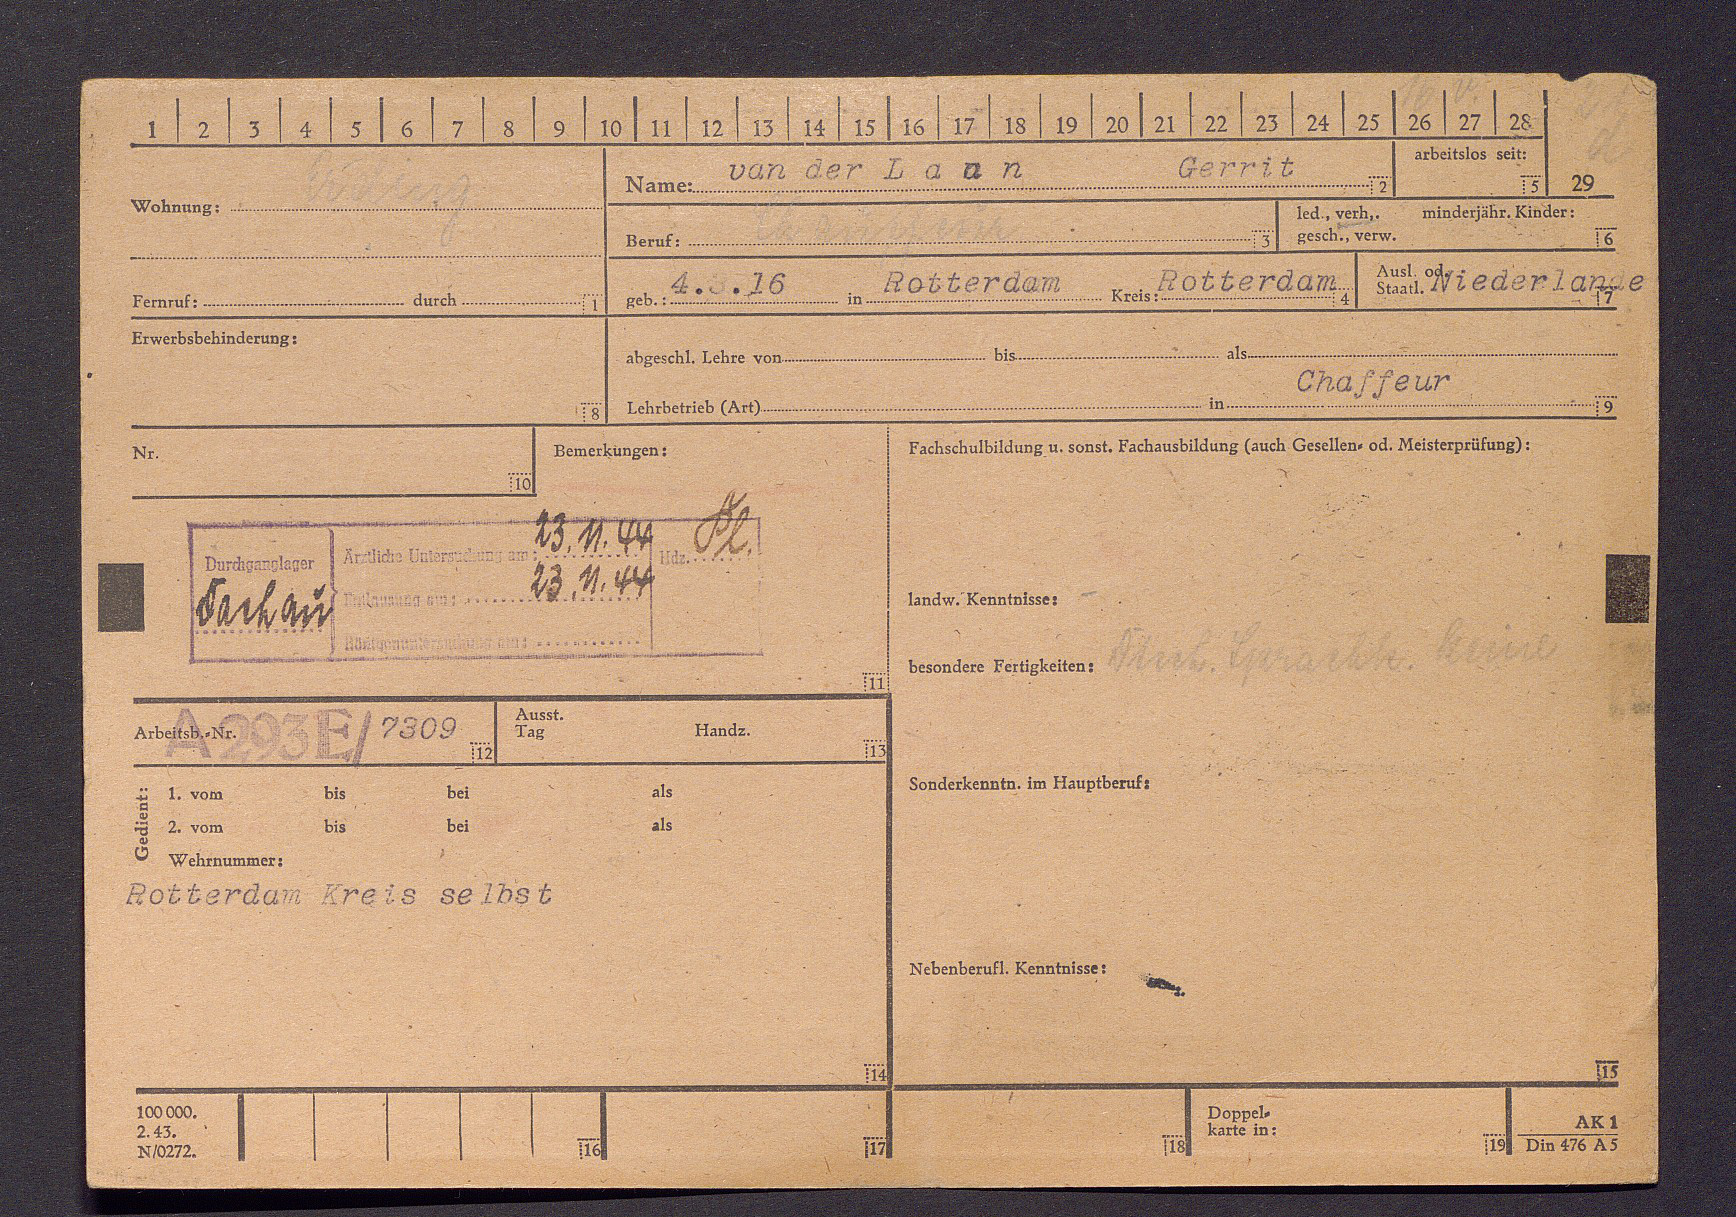 1 2 3 4 5 6 7 8 9 10 11 12 13 14 15 16 17 18 19 20 21 22 23 24 25 26 27 28
Name: van der Laan Gerrit 2
arbeitslos seit: 5
29
Wohnung:
Beruf: 3
led., verh,. minderjähr. Kinder:
gesch., verw. 6
Fernruf: durch 1
geb.: 4.3.16 in Rotterdam Kreis: Rotterdam 4
Ausl. od.
Staatl. Niederlande 7
Erwerbsbehinderung:
8
abgeschl. Lehre von bis als
Chaffeur
Lehrbetrieb (Art) in 9
Nr.
10
Bemerkungen:
Fachschulbildung u. sonst. Fachausbildung (auch Gesellen- od. Meisterprüfung):
Durchganglager
Dachau
Ärztliche Untersuchung am: 23.11.44 Hdz.
Entlausung am: 23.11.44
Röntgenuntersuchung am:
11
landw. Kenntnisse: -
besondere Fertigkeiten: Deutsch. Sprachk. keine
Arbeitsb.-Nr. A 293 E/ 7309 12
Ausst.
Tag Handz. 13
Sonderkenntn. im Hauptberuf:
Gedient:
1. vom bis bei als
2. vom bis bei als
Wehrnummer:
Rotterdam Kreis selbst
Nebenberufl. Kenntnisse:
14
15
100 000.
2. 43.
N/0272.
16 17 18
Doppel-
karte in: 19
AK 1
Din 476 A 5